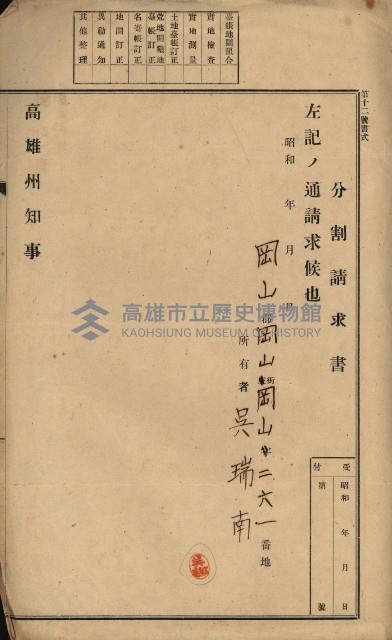 第十二號書式
臺帳地圖照合
實地檢查
實地測量
土地臺帳訂正
名寄帳訂正
地圖訂正
異動通知
其他整理
分割請求書
左記ノ通請求候也
昭和 年 月 日
岡山郡岡山街岡山二六一番地
所有者 吳瑞南
高雄州知事
受付
昭和 年 月 日
第 號
高雄市立歷史博物館
KAOHSIUNG MUSEUM OF HISTORY